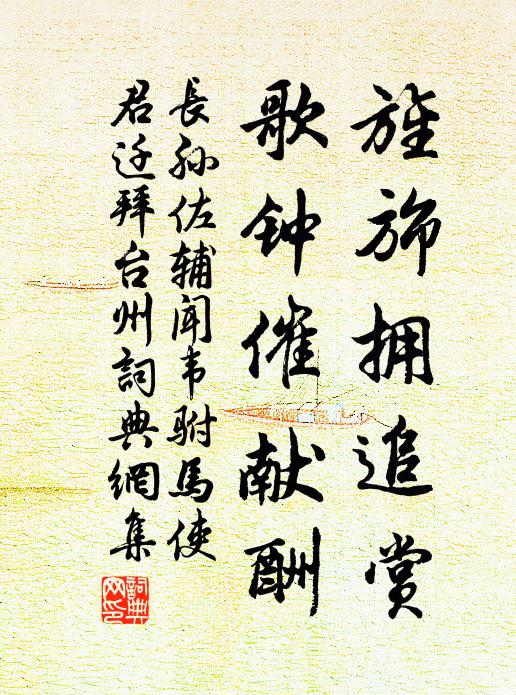 旌旆拥追赏
歌钟催献酬
長孙佐辅闻韦駙馬使
君迁拜台州詞典網集
詞典网印